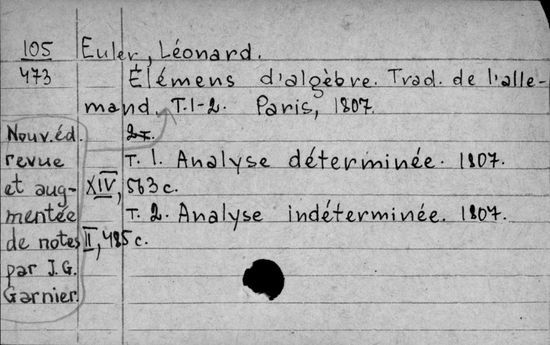 105 Euler, Léonard.
473 Élémens d'algèbre. Trad. de l'alle-
mand. T. 1-2. Paris, 1807.
Nouv. éd.
revue
et aug-
mentée
de notes
par J. G.
Garnier.
2 т.
T. 1. Analyse déterminée. 1807.
XIV, 563 c.
T. 2. Analyse indéterminée. 1807.
II, 485 c.